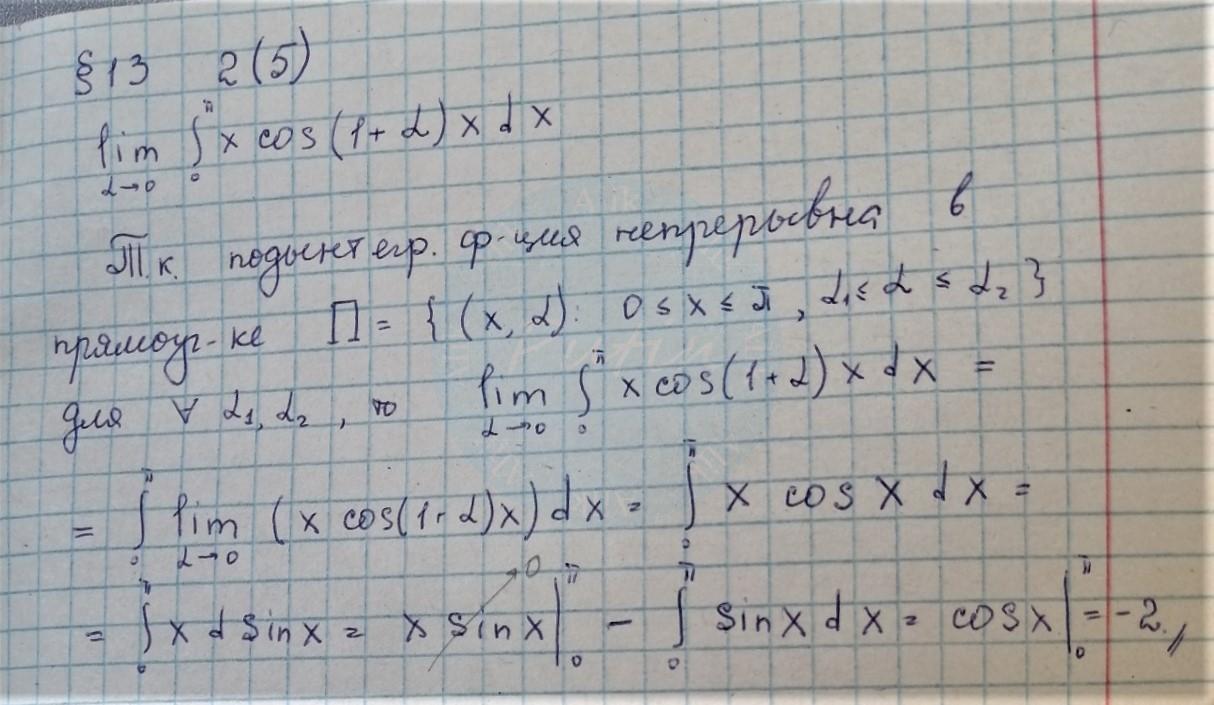 §13 2(5)
lim_{α→0} ∫_0^π x cos(1+α)x dx
Т.к. подынтегр. ф-ция непрерывна в
прямоуг-ке Π = {(x, α): 0 ≤ x ≤ π, α₁ ≤ α ≤ α₂}
для ∀ α₁, α₂, то lim_{α→0} ∫_0^π x cos(1+α)x dx =
= ∫_0^π lim_{α→0} (x cos(1+α)x) dx = ∫_0^π x cos x dx =
= ∫_0^π x d sin x = x sin x |_0^π → 0 − ∫_0^π sin x dx = cos x |_0^π = -2 //